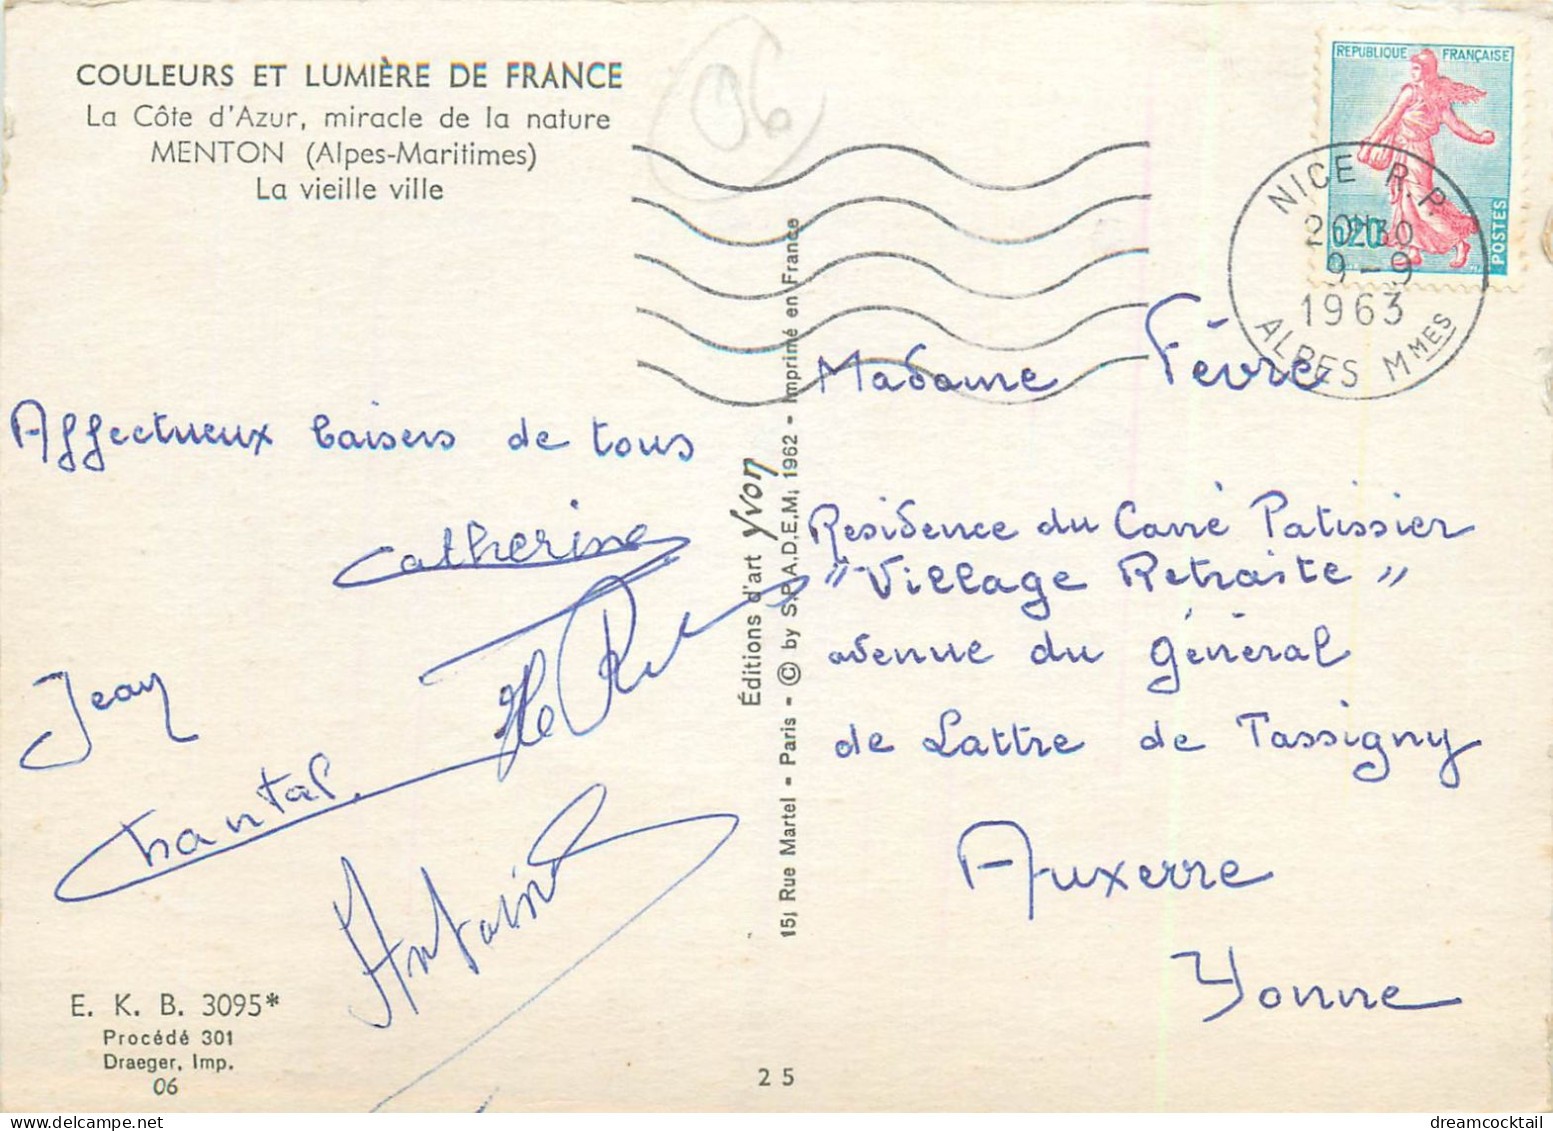 COULEURS ET LUMIÈRE DE FRANCE
La Côte d'Azur, miracle de la nature
MENTON (Alpes-Maritimes)
La vieille ville
06
REPUBLIQUE FRANÇAISE
0,20
POSTES
NICE R.P.
20H30
9-9
1963
ALPES MMES
Affectueux baisers de tous
Catherine
Jean
Chantal
Antoine
Éditions d'art Yvon
15, Rue Martel - Paris - © by S.P.A.D.E.M. 1962 - Imprimé en France
Madame Fèvre
Residence du Carré Patissier
"Village Retraite"
avenue du général
de Lattre de Tassigny
Auxerre
Yonne
E. K. B. 3095*
Procédé 301
Draeger, Imp.
06
25
dreamcocktail